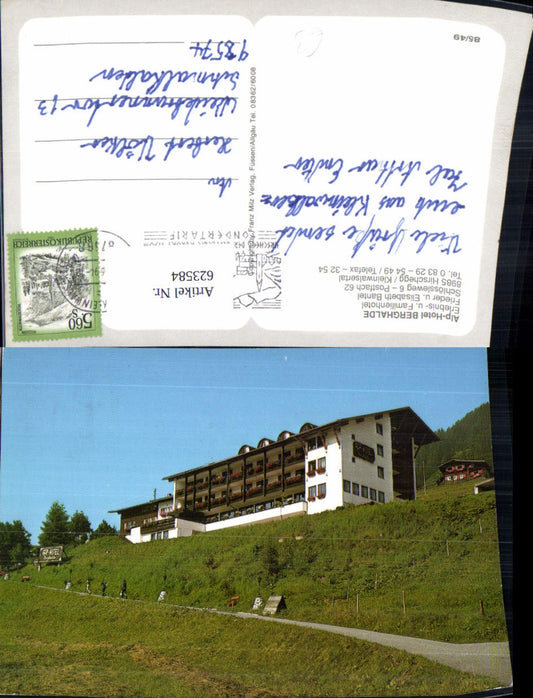 Alp-Hotel BERGHALDE
Erlebnis- u. Familienhotel
Frieder u. Elisabeth Bantel
Schlössleweg 6 – Postfach 62
8985 Hirschegg / Kleinwalsertal
Tel. 0 83 29 – 54 49 / Telefax – 32 54
Viele Grüße sendet
euch aus Kleinwalsertal
Fal. Arthur Endter
Copyright by Franz Milz Verlag, Füssen/Allgäu Tel. 08362/6008
85/49
Artikel Nr.
623584
SONDERTARIF
REPUBLIK ÖSTERREICH
5.60
S
An
Herbert Völker
Weidebrunnertor 13
Schmalkalden
98574
ALP-HOTEL